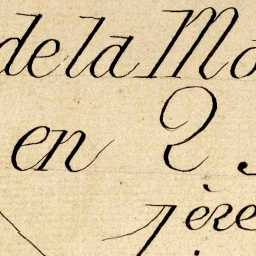 de la Mo
en 2
1ère